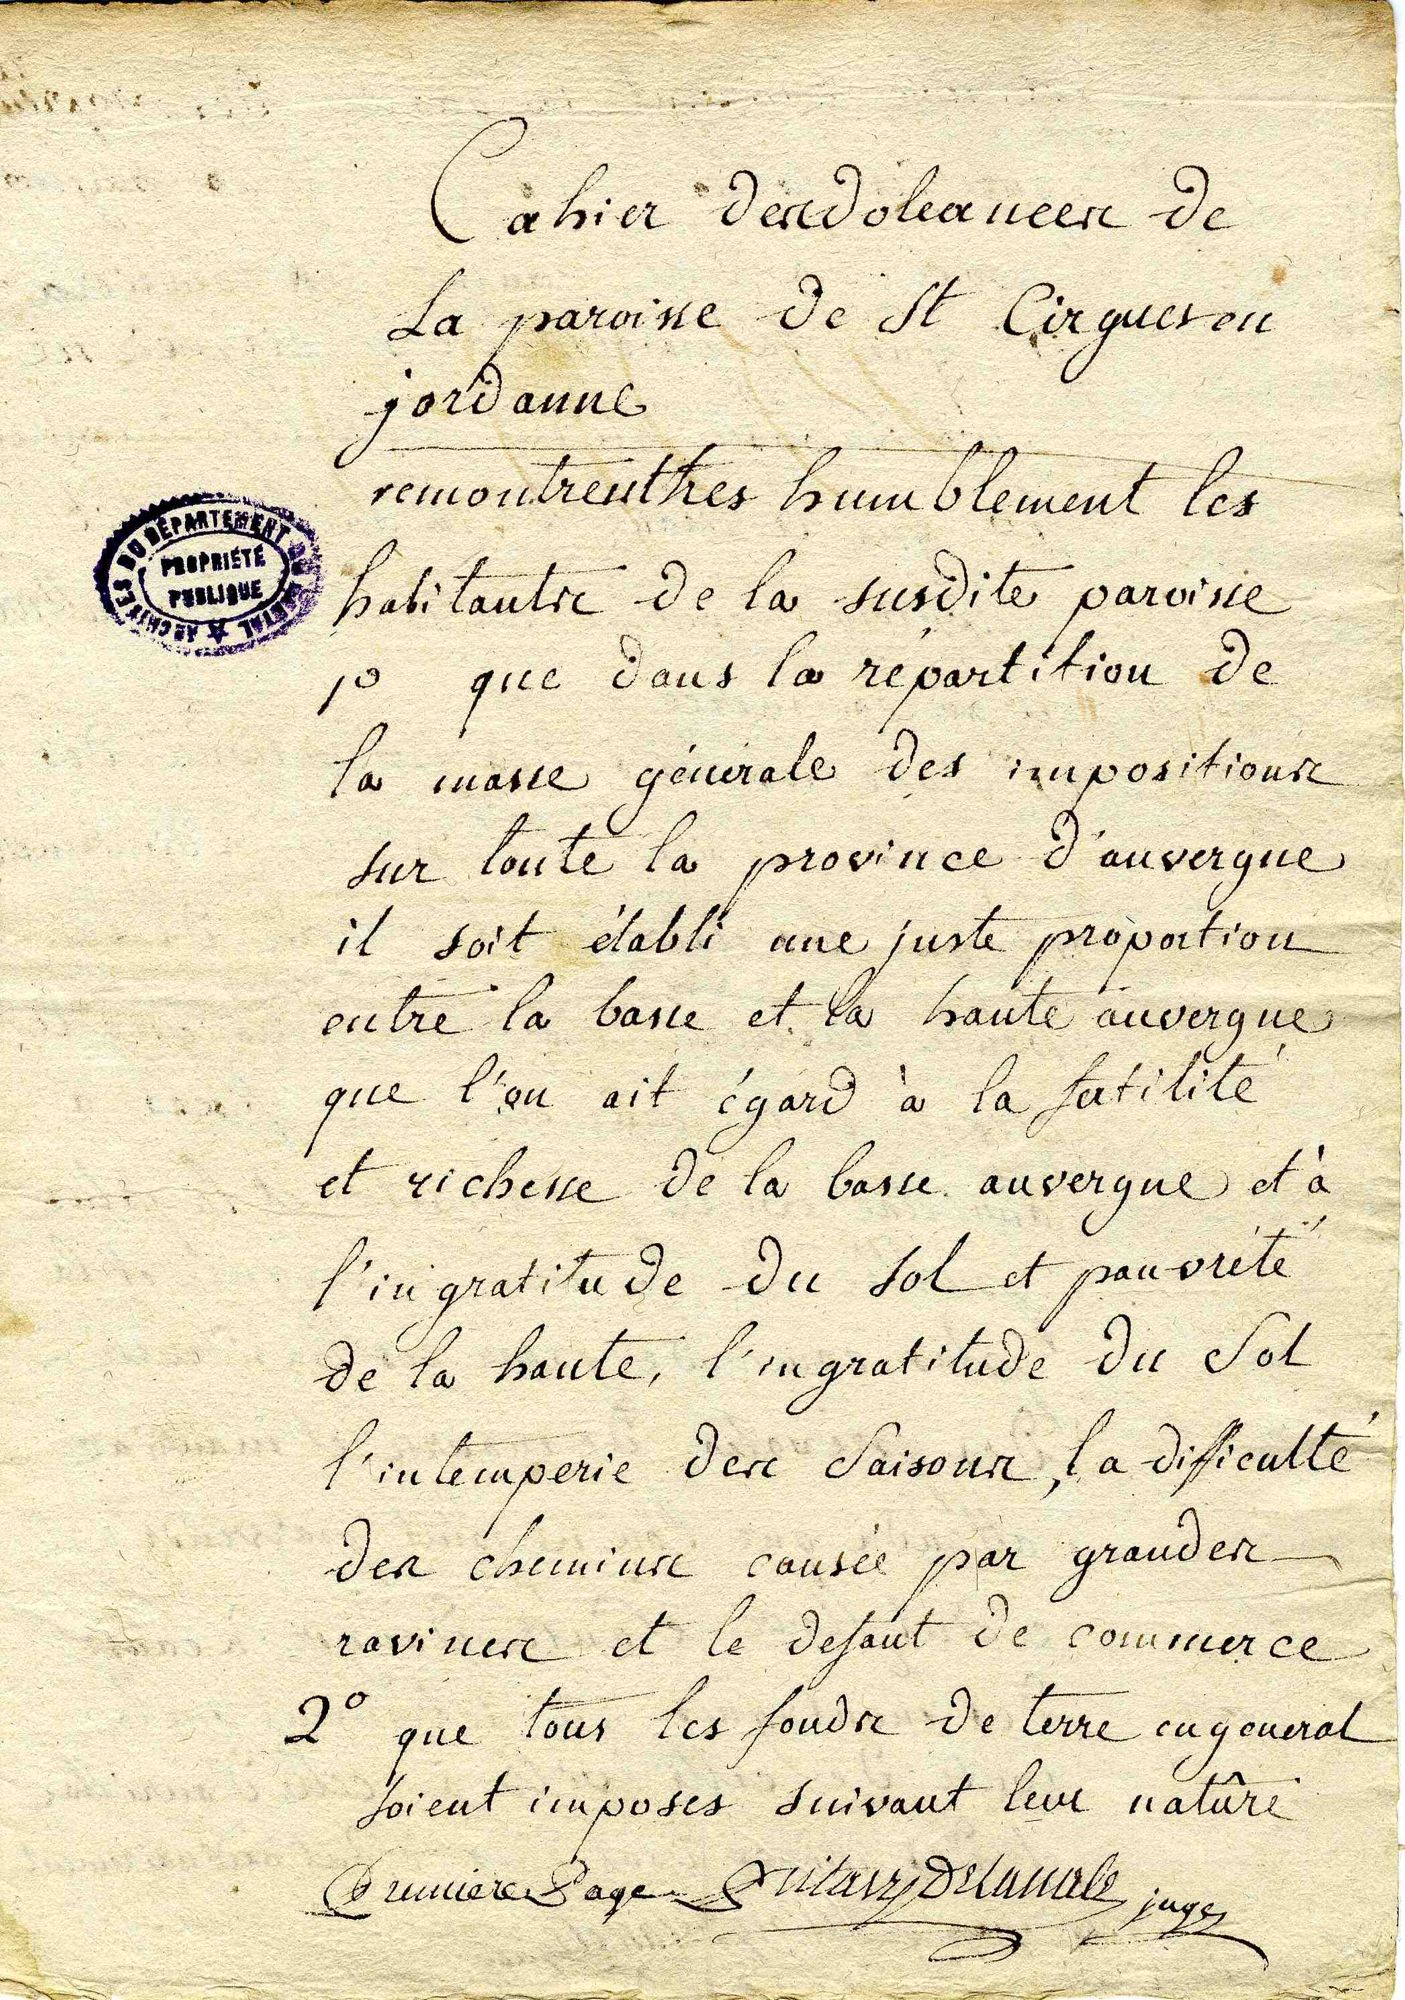 Cahier des doleances de
La paroisse de St Cirgues en
jordanne
remontrent tres humblement les
habitants de la susdite paroisse
1º que dans la répartition de
la masse générale des impositions
sur toute la province d'auvergne
il soit établi une juste proportion
entre la basse et la haute auvergne
que l'on ait égard à la fertilité
et richesse de la basse auvergne et à
l'ingratitude du sol et pauvreté
de la haute, l'ingratitude du Sol
l'intemperie des Saisons, la difficulté
des chemins causée par grandes
ravines et le defaut de commerce
2º que tous les fonds de terre en general
soient imposes suivant leur natûre
Premiere Page juge
ARCHIVES DU DÉPARTEMENT DU CANTAL
PROPRIÉTÉ
PUBLIQUE